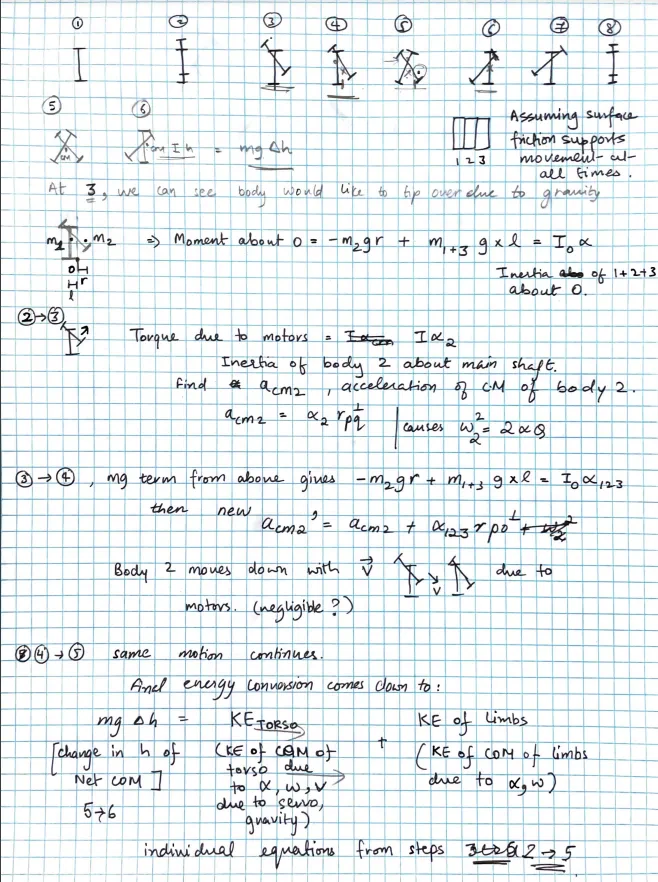 ① ② ③ ④ ⑤ ⑥ ⑦ ⑧
⑤ ⑥
CM I h = mg Δh
1 2 3
Assuming surface
friction supports
movement at
all times.
At 3, we can see body would like to tip over due to gravity
m1 m2 ⇒ Moment about O = -m₂gr + m₁₊₃ g x l = I₀ α
O r
l
Inertia of 1+2+3
about O.
②→③
Torque due to motors = Iα₂
Inertia of body 2 about main shaft.
Find a_cm2, acceleration of CM of body 2.
a_cm2 = α₂ r_pq^⊥ | causes ω₂² = 2αθ
③→④, mg term from above gives -m₂gr + m₁₊₃ g x l = I₀ α₁₂₃
then new
a_cm2' = a_cm2 + α₁₂₃ r_po^⊥
Body 2 moves down with v⃗ v due to
motors. (negligible?)
④→⑤ same motion continues.
And energy conversion comes down to:
mg Δh = KE_TORSO + KE of limbs
[change in h of
Net COM]
5→6
(KE of COM of
torso due
to α, ω, v
due to servo,
gravity)
(KE of COM of limbs
due to α, ω)
individual equations from steps 2→5